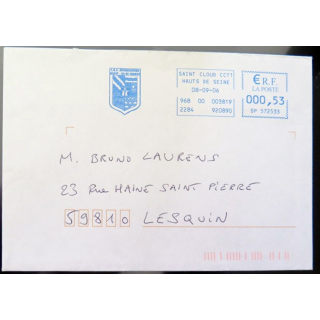 SAINT CLOUD CCT1
HAUTS DE SEINE
08-09-06
968 00 003819
2284 920890
€ R.F.
LA POSTE
000,53
M. BRUNO LAURENS
23 Rue HAINE SAINT PIERRE
59810 LESQUIN